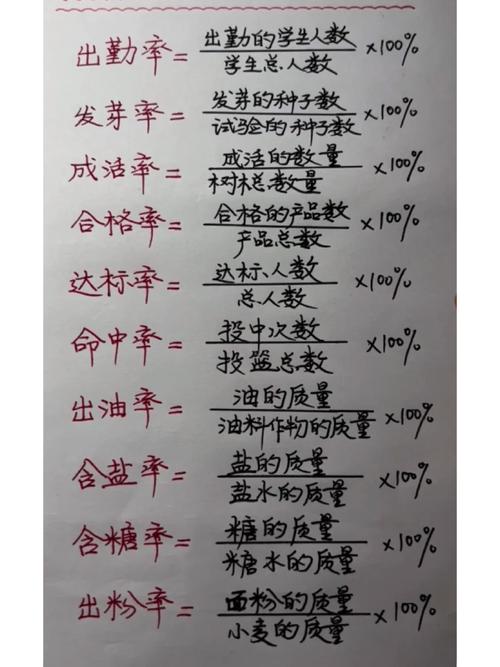 出勤率=出勤的学生人数/学生总人数×100%
发芽率=发芽的种子数/试验的种子数×100%
成活率=成活的数量/树木总数量×100%
合格率=合格的产品数/产品总数×100%
达标率=达标人数/总人数×100%
命中率=投中次数/投篮总数×100%
出油率=油的质量/油料作物的质量×100%
含盐率=盐的质量/盐水的质量×100%
含糖率=糖的质量/糖水的质量×100%
出粉率=面粉的质量/小麦的质量×100%